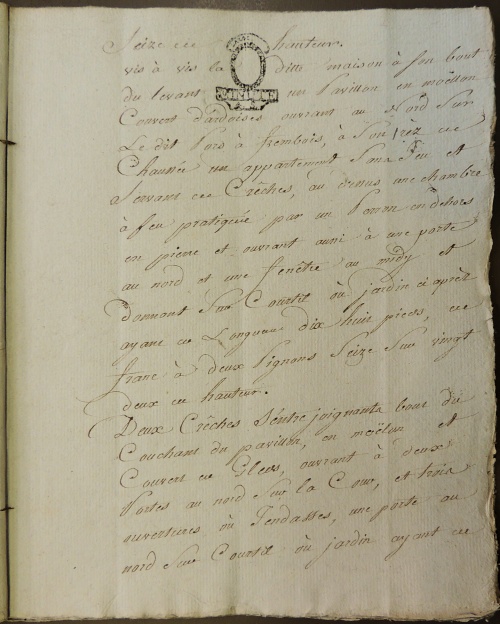 Seize en hauteur.
vis à vis la ditte maison à son bout
du levant un Pavillon en moëllon
MINUTE
Couvert d'ardoises ouvrant au Nord Sur
Le dit Pors à frembois, à Son réz de
Chaussée un appartement Sans feu et
Servant de Crêches, au dessus une chambre
à feu pratiquée par un Perron en dehors
en pierre et ouvrant aussi à une porte
au nord et une fenêtre au midy et
donnant Sur Courtil où jardin ci après
ayant de Longueur dix huit pieds, de
franc à deux Pignons Seize Sur vingt
deux de hauteur.
Deux Crêches S'entre joignants bout du
Couchant du pavillon, en moëlon et
Couvert de Gleds, ouvrant à deux
Portes au nord Sur la Cour, et trois
ouvertures où Fendasses, une porte au
nord Sur Courtil où jardin ayant de